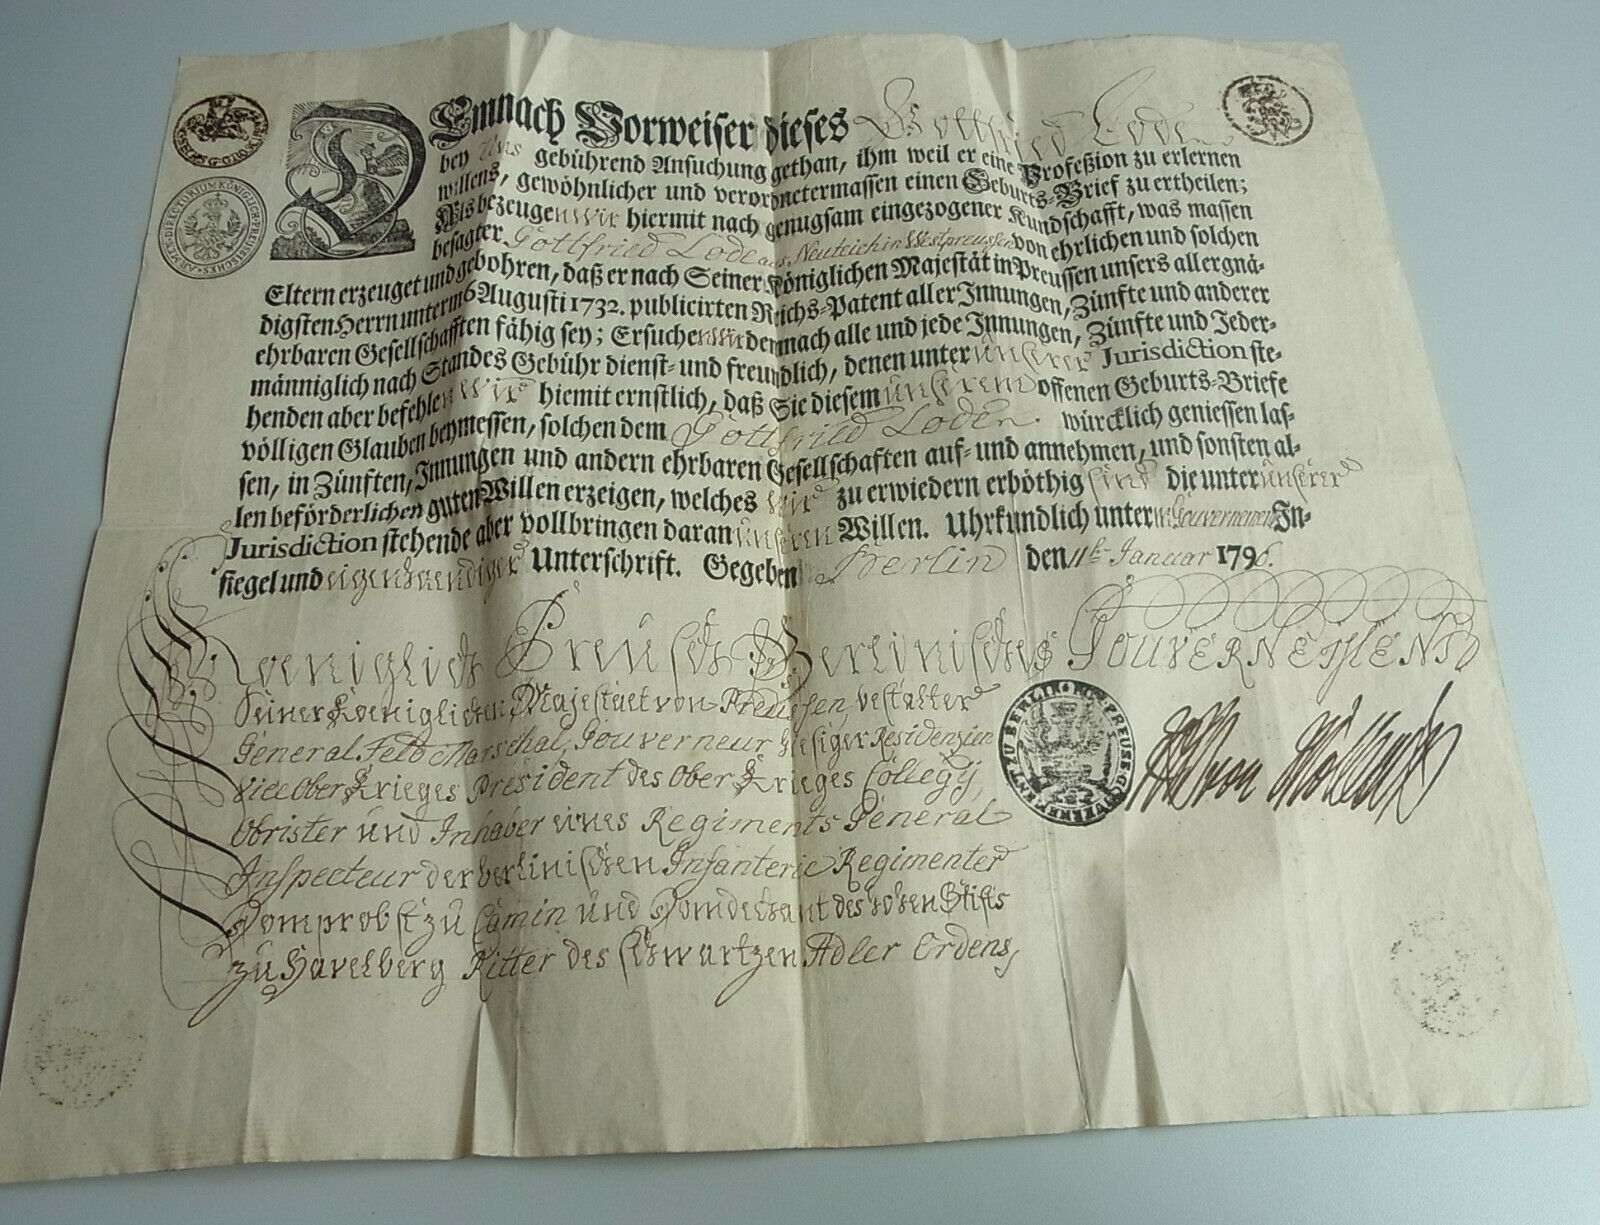 Demnach Vorweiser dieses Gottfried Loden
bey Uns gebührend Ansuchung gethan, ihm weil er eine Profeßion zu erlernen
willens, gewöhnlicher und verordnetermassen einen Geburts-Brief zu ertheilen;
Als bezeugen wir hiermit nach genugsam eingezogener Kundschafft, was massen
besagter Gottfried Loden aus Neuteich in Westpreussen von ehrlichen und solchen
Eltern erzeuget und gebohren, daß er nach Seiner Königlichen Majestät in Preussen unsers allergnä-
digsten Herrn unterm 6 Augusti 1732. publicirten Reichs-Patent aller Innungen, Zünfte und anderer
ehrbaren Gesellschafften fähig sey; Ersuchen wir demnach alle und jede Innungen, Zünfte und Jeder-
männiglich nach Standes Gebühr dienst- und freundlich, denen unter unserer Jurisdiction ste-
henden aber befehlen Wir hiemit ernstlich, daß Sie diesem unserem offenen Geburts-Briefe
völligen Glauben beymessen, solchen dem Gottfried Loden würcklich geniessen las-
sen, in Zünften, Innungen und andern ehrbaren Gesellschaften auf- und annehmen, und sonsten al-
len beförderlichen guten Willen erzeigen, welches wir zu erwiedern erböthig sind die unter unserer
Jurisdiction stehende aber vollbringen daran unseren Willen. Uhrkundlich unterm Gouvernements In-
siegel und eigenhaendiger Unterschrift. Gegeben Berlin den 11ten Januar 1796.
Koeniglich Preusch Berlinisches GOUVERNEMENT
Seiner Koeniglichen Majestaet von Preussen, bestalter
General Feld Marschal, Gouverneur hiesiger Residenzien
Vice Ober Krieges Président des Ober Krieges Collegy,
Obrister und Inhaber eines Regiments General
Inspecteur der berlinischen Infanterie Regimenter
Domprobst zu Camin und Domdechant des hohen Stifts
zu Havelberg Ritter des schwartzen Adler Ordens,
von Möllendorf
ARMEN DIRECTORIUM KÖNIGL PREUSSISCHES